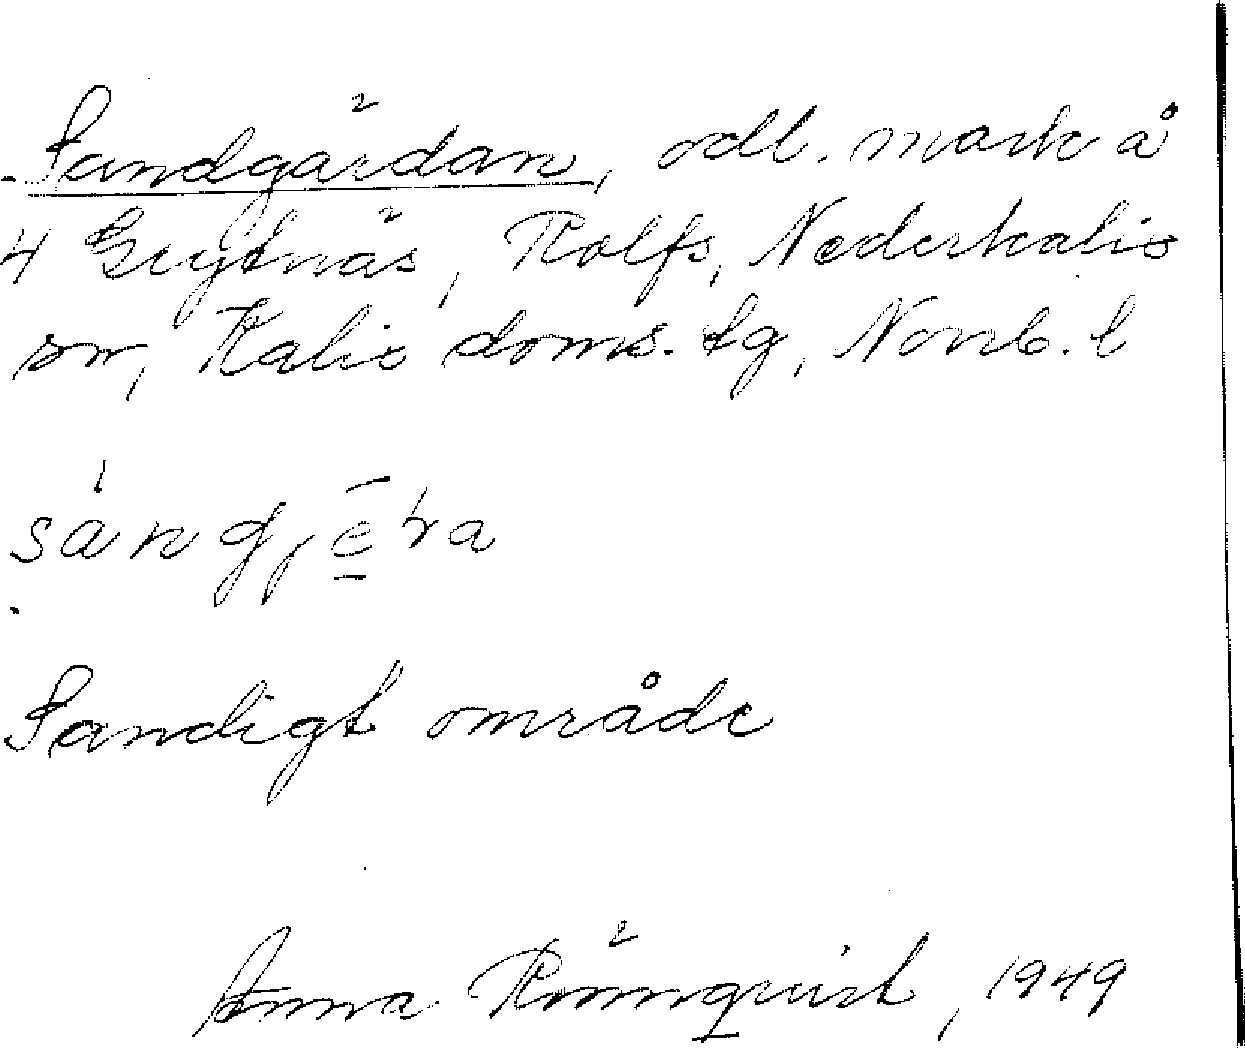 Sandgärdan, odl. mark å
4 Grytnäs, Rolfs, Nederkalix
sn, Kalix doms. tg, Norrb. l
sángjē̱ra
Sandigt område
Anna Rönnqvist, 1949